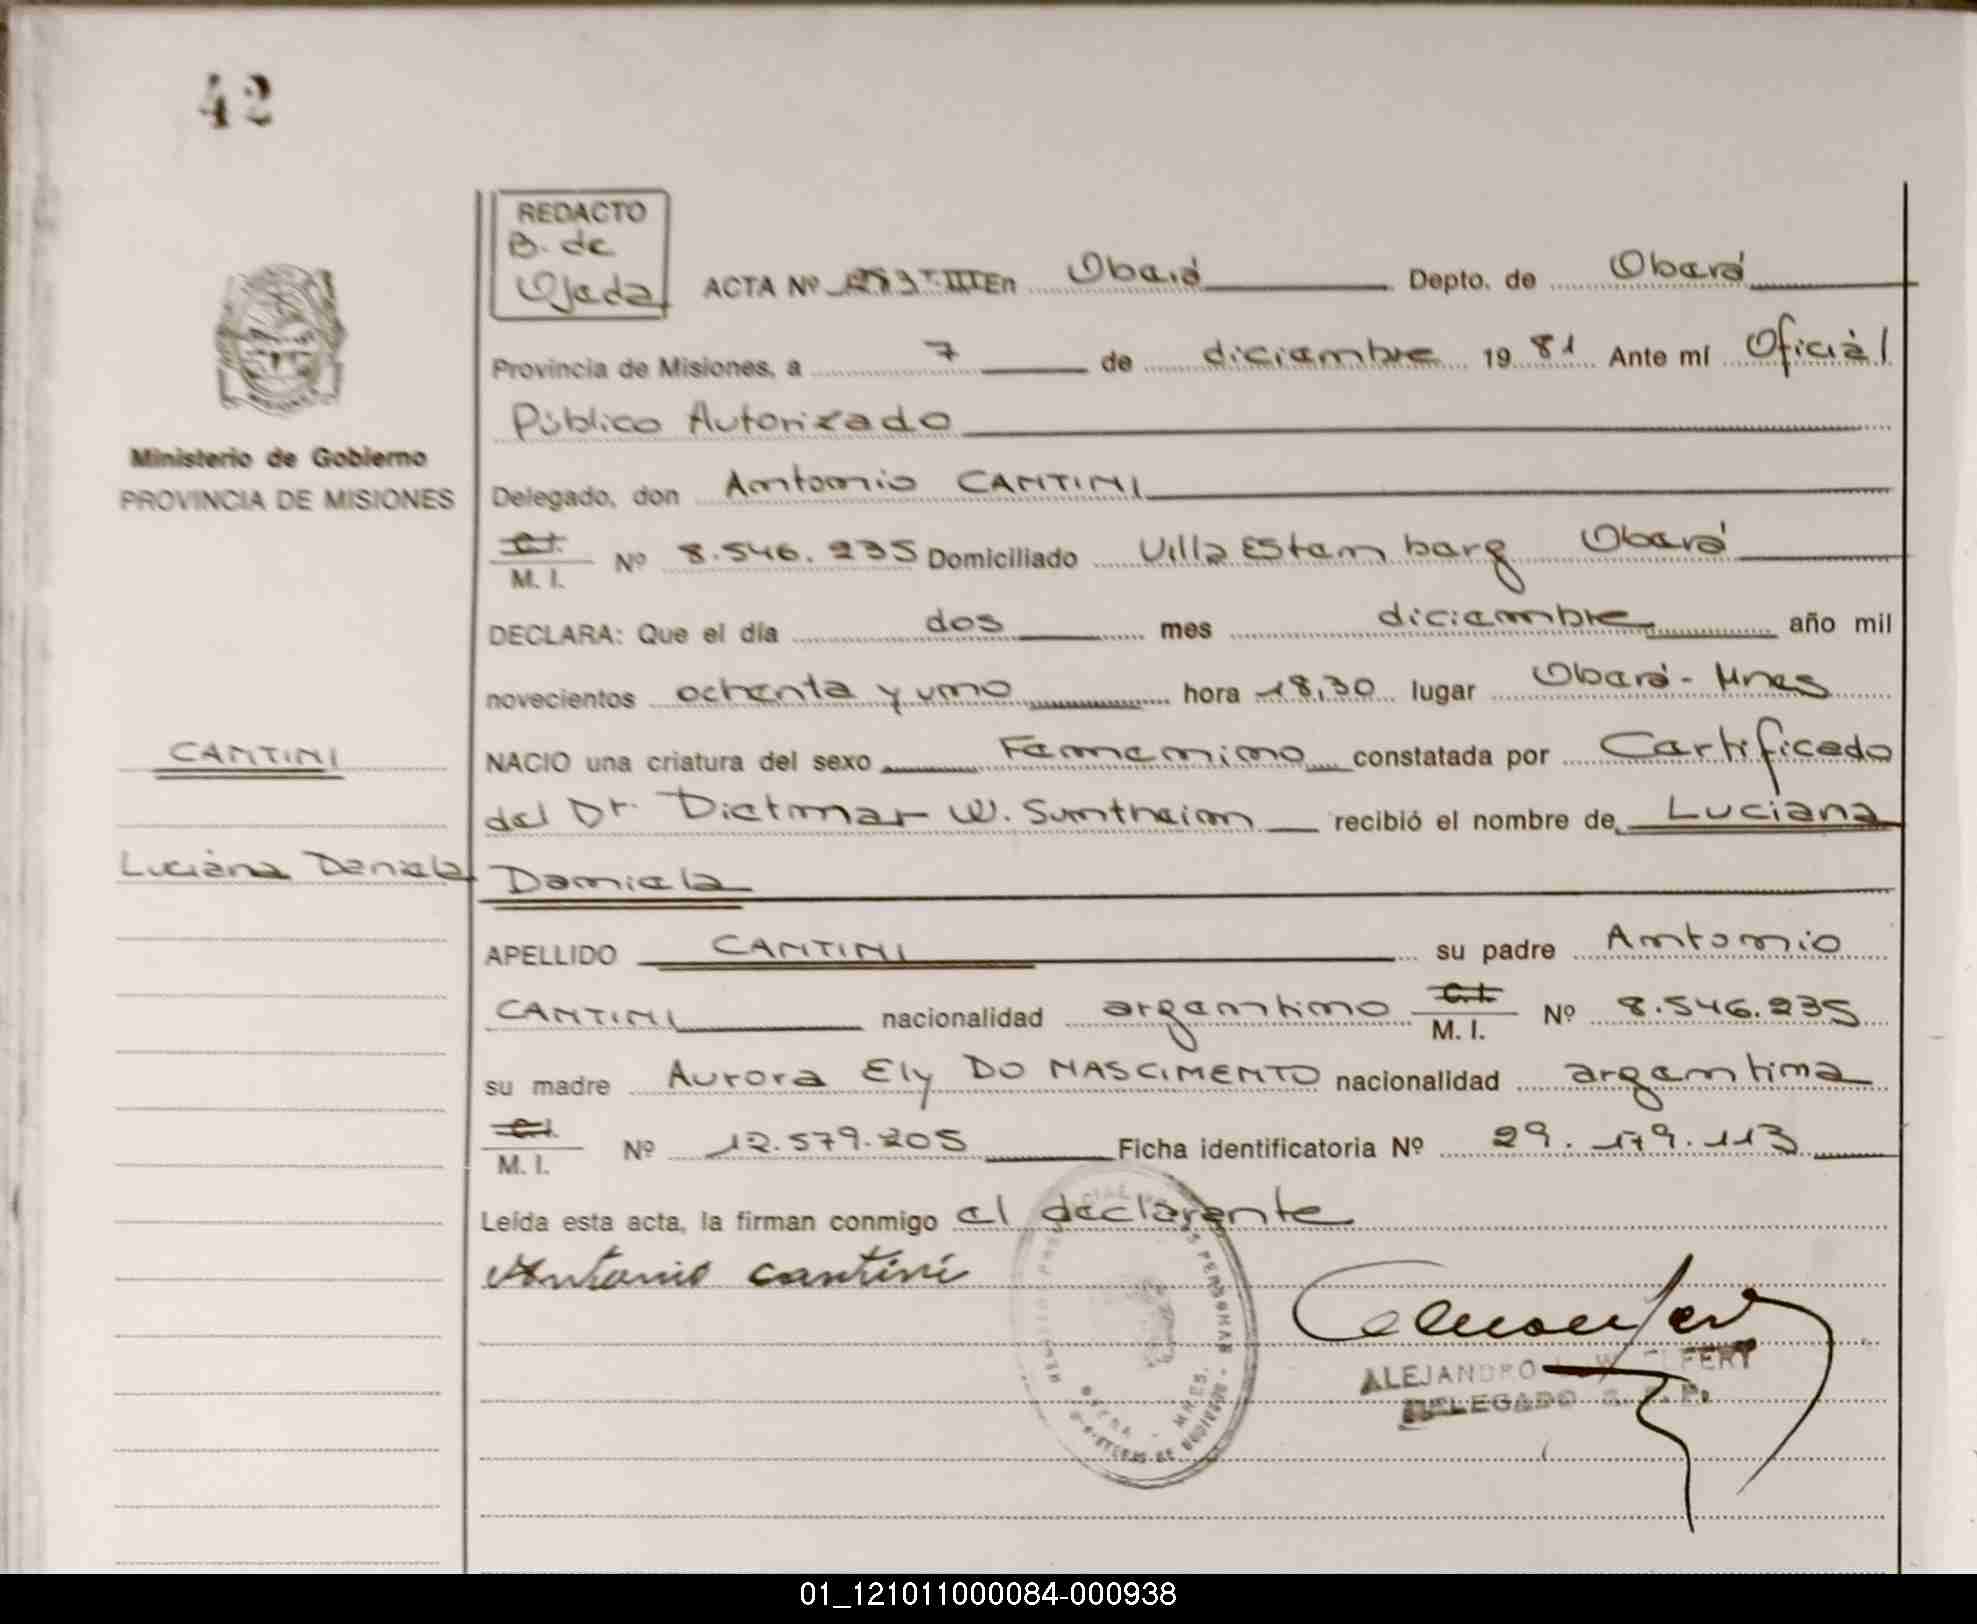 42
REDACTO
B. de
Ojeda
ACTA Nº 273 T. III En Oberá Depto. de Oberá
Provincia de Misiones, a 7 de diciembre 19 81 Ante mí Oficial
Público Autorizado
Ministerio de Gobierno
PROVINCIA DE MISIONES
Delegado, don Antonio CANTINI
C.I.
M. I. Nº 8.546.235 Domiciliado Villa Estambarg Oberá
DECLARA: Que el día dos mes diciembre año mil
novecientos ochenta y uno hora 18,30 lugar Oberá - Mnes
CANTINI
NACIO una criatura del sexo Femenino constatada por Certificado
del Dr. Dietmar W. Suntheim recibió el nombre de Luciana
Luciana Daniela
Daniela
APELLIDO CANTINI su padre Antonio
CANTINI nacionalidad argentino C.I.
M. I. Nº 8.546.235
su madre Aurora Ely DO NASCIMENTO nacionalidad argentina
C.I.
M. I. Nº 12.579.205 Ficha identificatoria Nº 29.179.113
Leída esta acta, la firman conmigo el declarante
Antonio Cantini
ALEJANDRO
DELEGADO
01_121011000084-000938